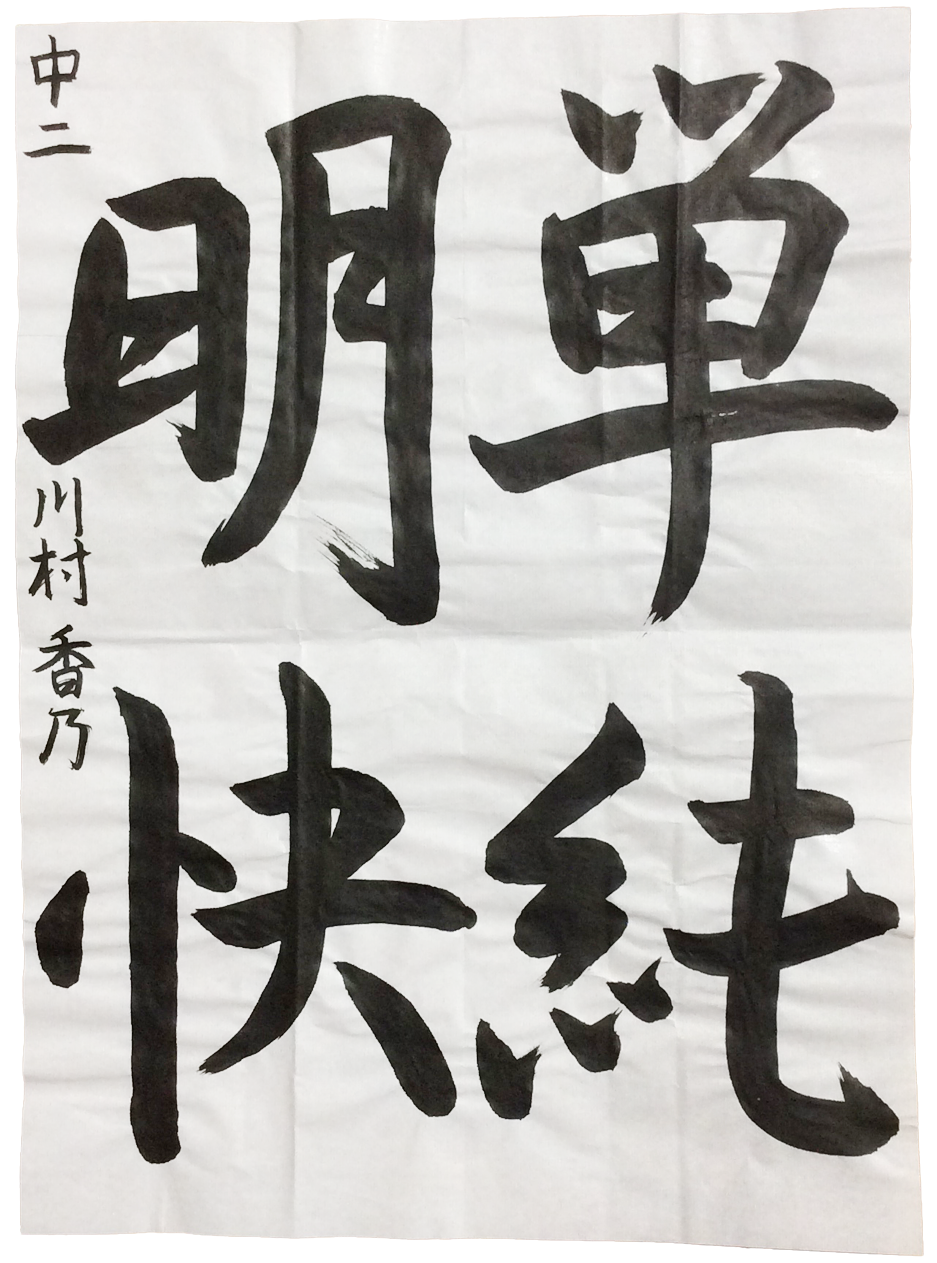 単純
明快
中二 川村香乃